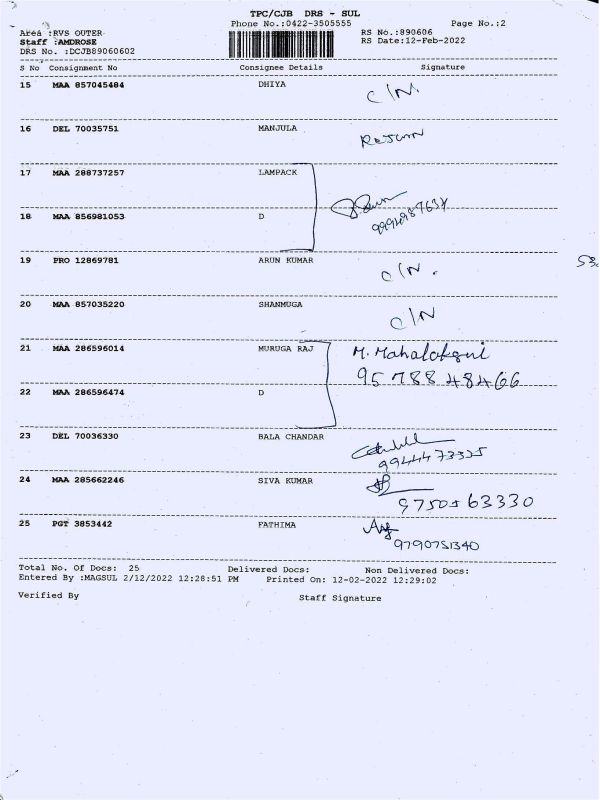 TPC/CJB DRS - SUL
Phone No.:0422-3505555 Page No.:2
Area :RVS OUTER RS No.:890606
Staff :AMDROSE RS Date:12-Feb-2022
DRS No. :DCJB89060602
S No Consignment No Consignee Details Signature
15 MAA 857045484 DHIYA C/N.
16 DEL 70035751 MANJULA
17 MAA 288737257 LAMPACK
18 MAA 856981053 D
19 PRO 12869781 ARUN KUMAR C/N.
20 MAA 857035220 SHANMUGA C/N
21 MAA 286596014 MURUGA RAJ M. Mahalakshmi
95788 48466
22 MAA 286596474 D
23 DEL 70036330 BALA CHANDAR
9944473325
24 MAA 285662246 SIVA KUMAR
9750563330
25 PGT 3853442 FATHIMA
9790751340
Total No. Of Docs: 25 Delivered Docs: Non Delivered Docs:
Entered By :MAGSUL 2/12/2022 12:28:51 PM Printed On: 12-02-2022 12:29:02
Verified By Staff Signature